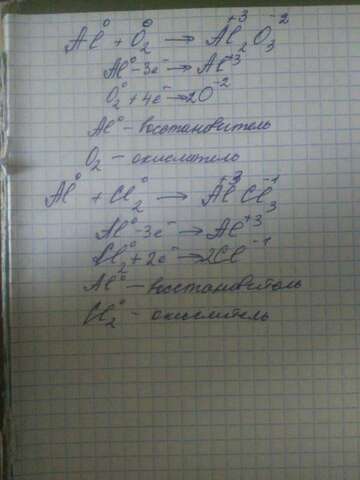 Al⁰ + O₂⁰ → Al₂⁺³O₃⁻²
Al⁰ - 3e⁻ → Al⁺³
O₂⁰ + 4e⁻ → 2O⁻²
Al⁰ - восстановитель
O₂ - окислитель
Al⁰ + Cl₂⁰ → Al⁺³Cl₃⁻¹
Al⁰ - 3e⁻ → Al⁺³
Cl₂⁰ + 2e⁻ → 2Cl⁻¹
Al⁰ - восстановитель
Cl₂⁰ - окислитель